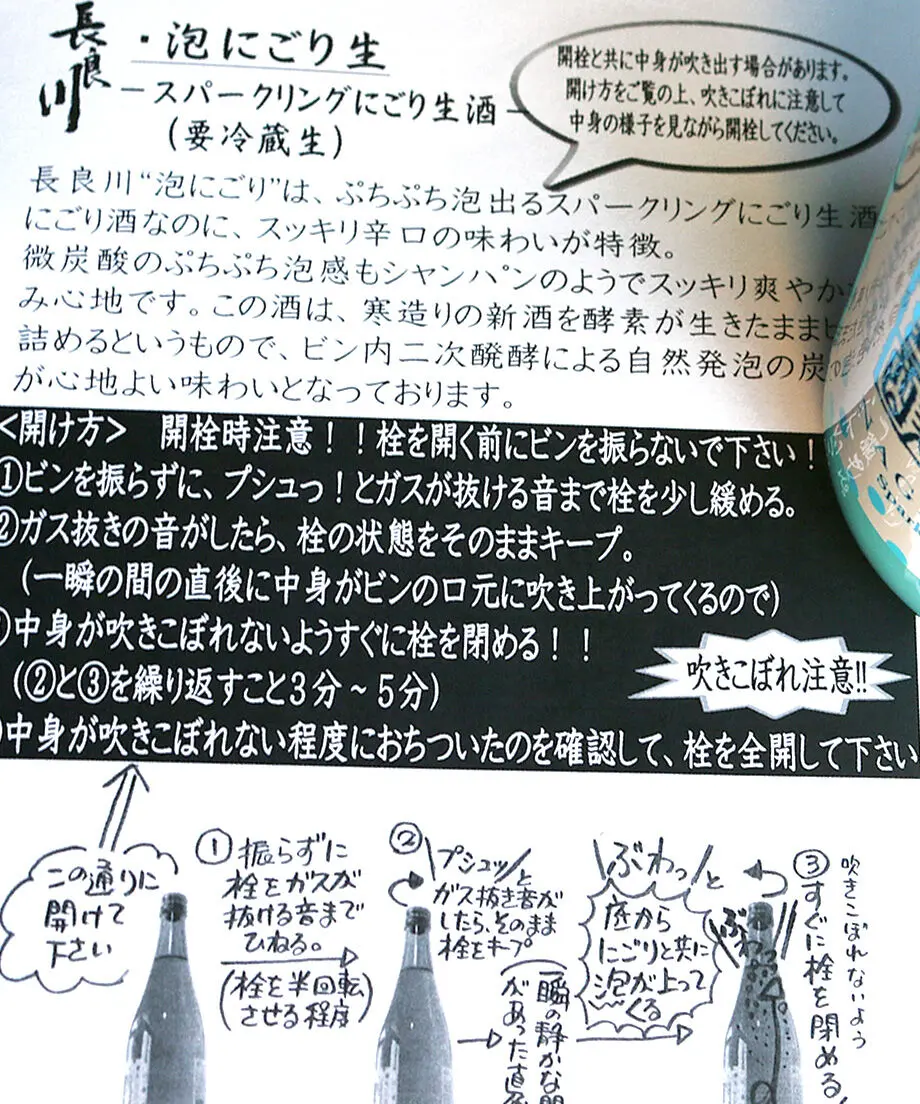 長良川・泡にごり生
－スパークリングにごり生酒－
(要冷蔵生)
開栓と共に中身が吹き出す場合があります。
開け方をご覧の上、吹きこぼれに注意して
中身の様子を見ながら開栓してください。
長良川“泡にごり”は、ぷちぷち泡出るスパークリングにごり生酒
にごり酒なのに、スッキリ辛口の味わいが特徴。
微炭酸のぷちぷち泡感もシャンパンのようでスッキリ爽やか
み心地です。この酒は、寒造りの新酒を酵素が生きたまま
詰めるというもので、ビン内二次醗酵による自然発泡の炭
が心地よい味わいとなっております。
<開け方> 開栓時注意！！栓を開く前にビンを振らないで下さい！
①ビンを振らずに、プシュっ！とガスが抜ける音まで栓を少し緩める。
②ガス抜きの音がしたら、栓の状態をそのままキープ。
(一瞬の間の直後に中身がビンの口元に吹き上がってくるので)
中身が吹きこぼれないようすぐに栓を閉める！！
(②と③を繰り返すこと3分～5分)
吹きこぼれ注意!!
中身が吹きこぼれない程度におちついたのを確認して、栓を全開して下さい
この通りに
開けて
下さい
①振らずに
栓をガスが
抜ける音まで
ひねる。
(栓を半回転
させる程度)
②プシュッと
ガス抜き音が
したら、そのまま
栓をキープ
一瞬の静かな間
があった直後
ぶわっと
底から
にごりと共に
泡が上って
くる
ぶわっ
③すぐに栓を閉める
吹きこぼれないよう